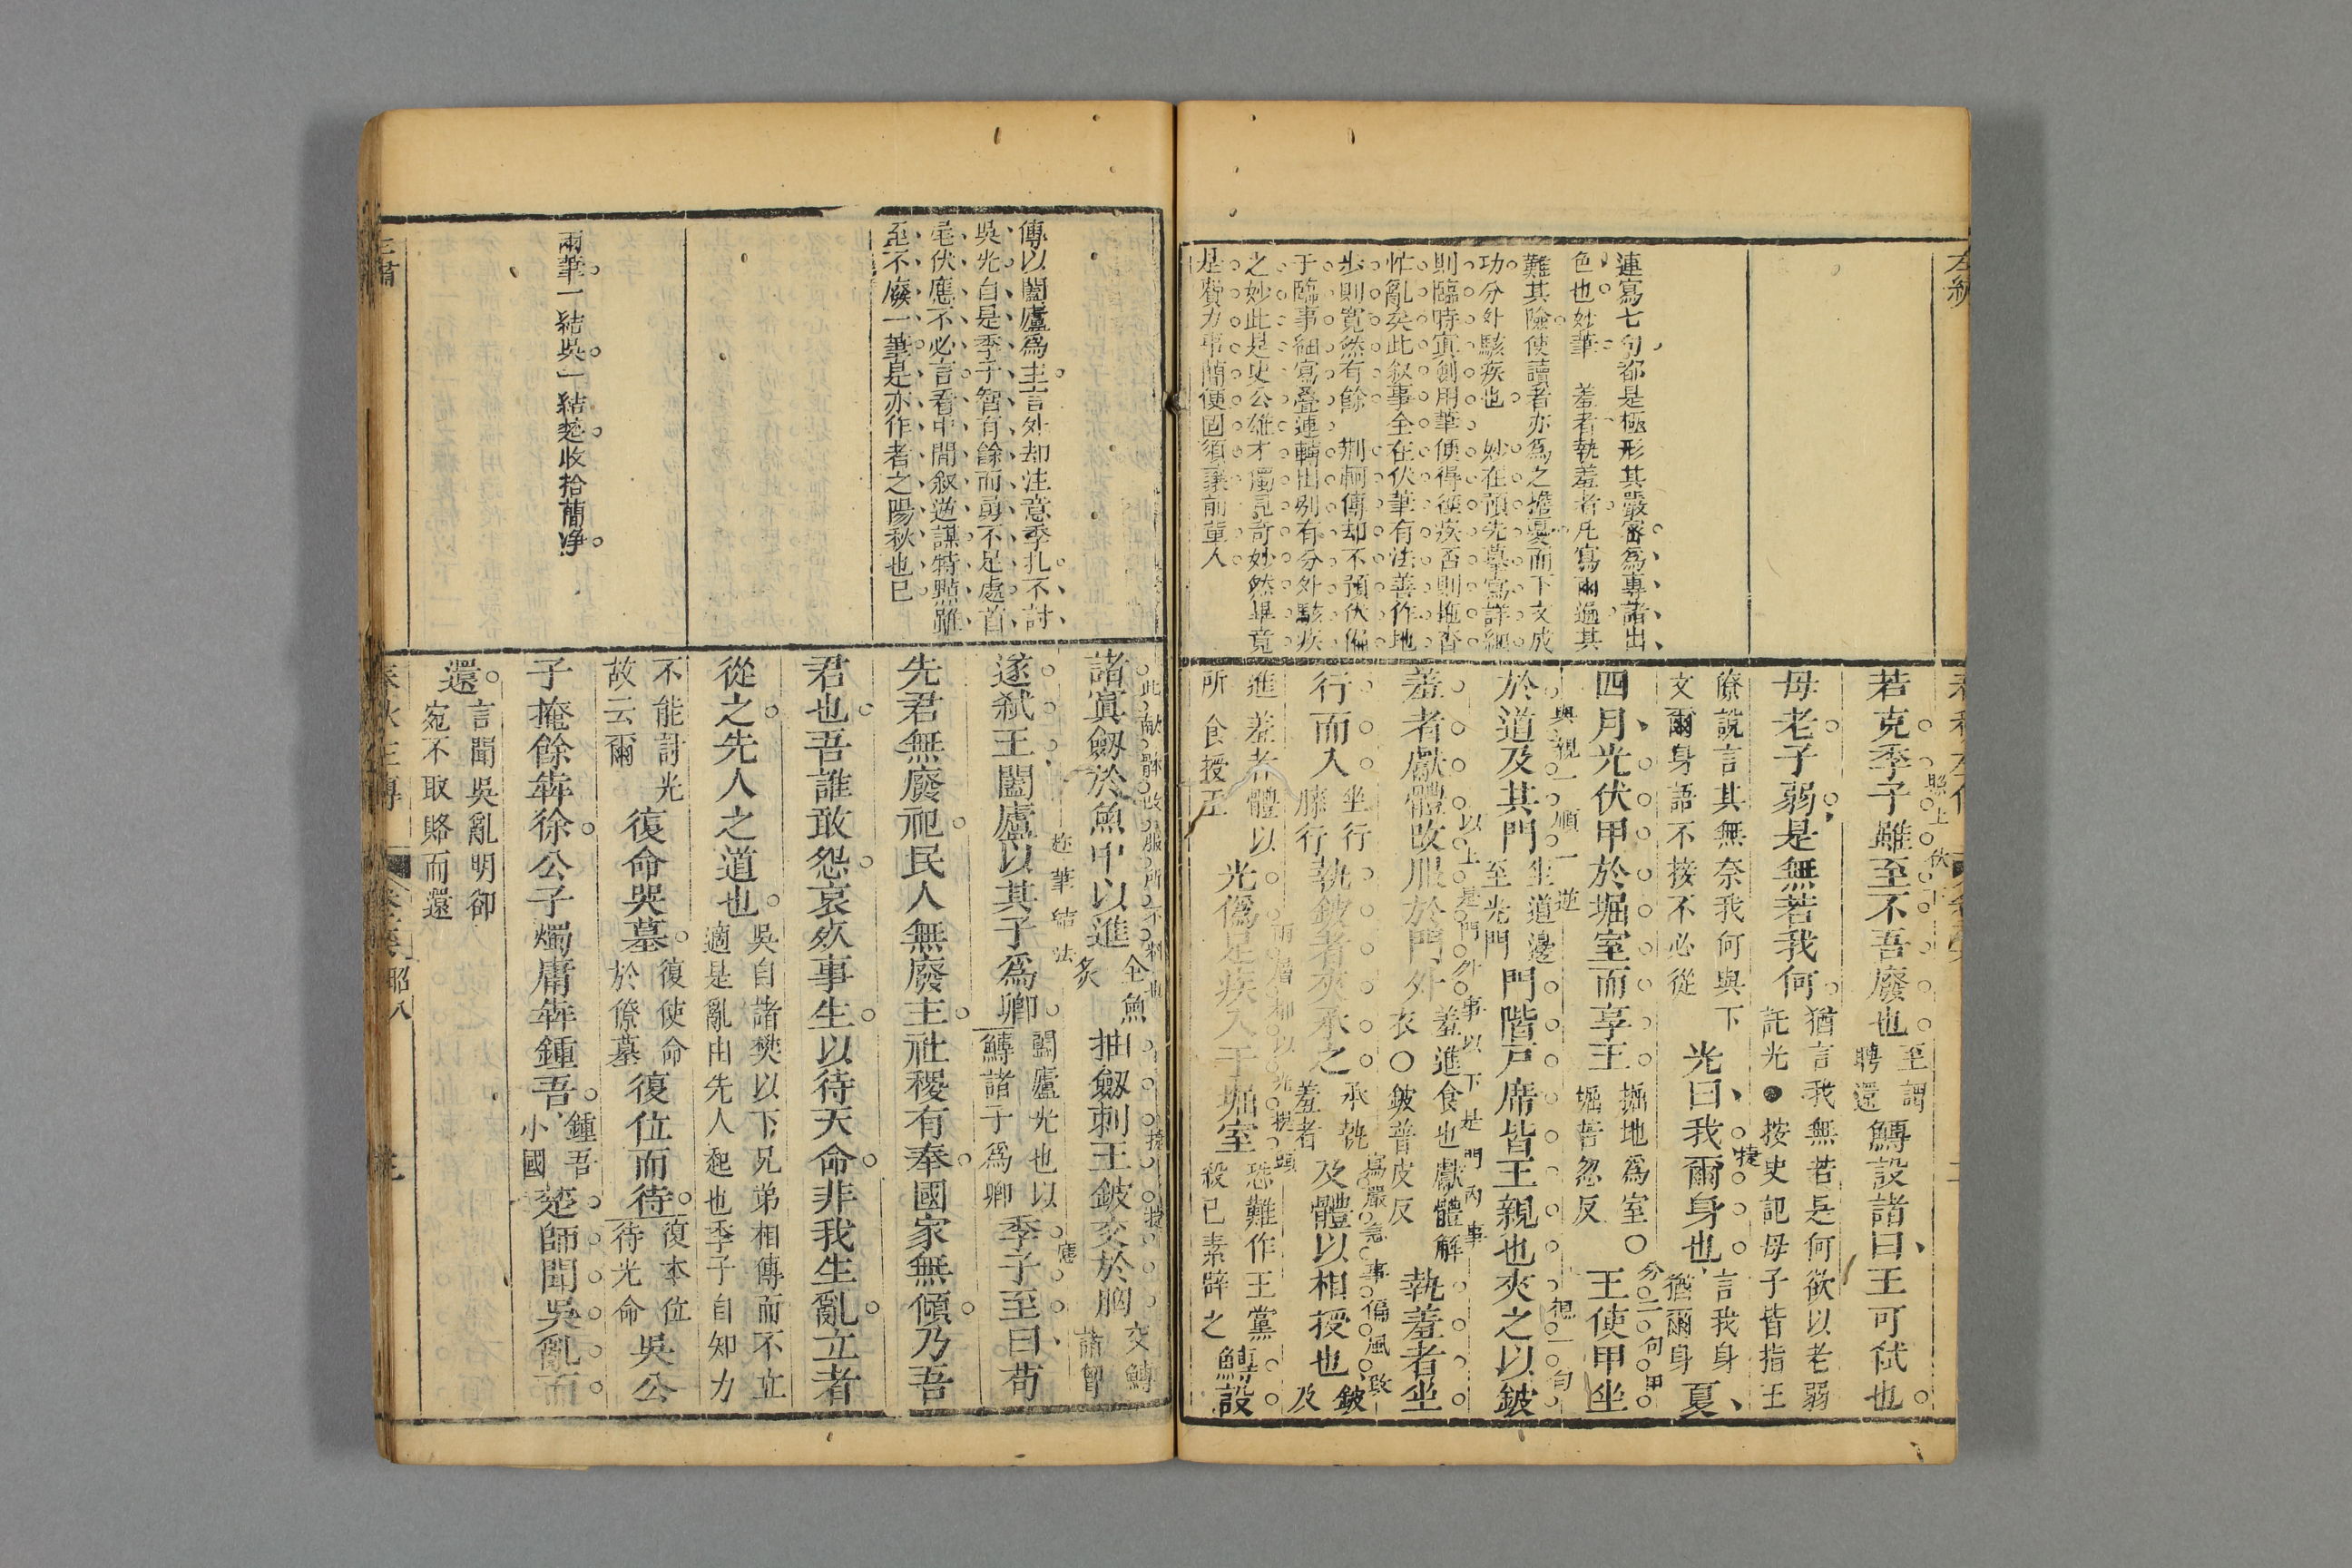 連寫七句都是極形其嚴密爲專諸出
色也妙筆　羞者執羞者凡寫兩過其
難其險使讀者亦爲之擔憂而下文成
功分外駭疾也　妙在預先摹寫詳細
則臨時寘劍用筆便得徑疾否則拖沓
忙亂矣此叙事全在伏筆有法善作地
步則寬然有餘　荆軻傳却不預伏偏
于臨事細寫叠連轉出别有分外駭疾
之妙此是史公雄才獨見竒妙然畢竟
是費力事簡便固須讓前輩人
若克季子雖至不吾廢也至謂聘還鱄設諸曰王可弑也
母老子弱是無若我何猶言我無若是何欲以老弱託光●按史記母子皆指王
僚說言其無奈我何與下文爾身語不接不必從光曰我爾身也言我身猶爾身夏
四月光伏甲於堀室而享王掘地爲室○堀苦忽反王使甲坐
於道及其門坐道邊至光門門階戸席皆王親也夾之以鈹
羞者獻體改服於門外羞進食也獻體解衣○鈹普皮反執羞者坐
行而入坐行膝行執鈹者夾承之承執羞者及體以相授也鈹及
進羞者體以所食授王光僞足疾入于堀室恐難作王黨殺已素辟之鱄設
傳以闔廬爲主言外却注意季札不討
吳光自是季子智有餘而勇不足處首
尾伏應不必言看中閒叙逊謀特點雖
至不廢一筆是亦作者之陽秋也已
兩筆一結吳一結楚收拾簡净
諸寘劒於魚中以進全魚炙抽劒刺王鈹交於胸交鱄諸胷
遂弑王闔廬以其子爲卿闔廬光也以鱄諸子爲卿季子至曰苟
先君無廢祀民人無廢主社稷有奉國家無傾乃吾
君也吾誰敢怨哀死事生以待天命非我生亂立者
從之先人之道也吳自諸樊以下兄弟相傳而不立適是亂由先人起也季子自知力
不能討光故云爾復命哭墓復使命於僚墓復位而待復本位待光命吳公
子掩餘奔徐公子燭庸奔鍾吾鍾吾小國楚師聞吳亂而
還言聞吳亂明卻宛不取賂而還